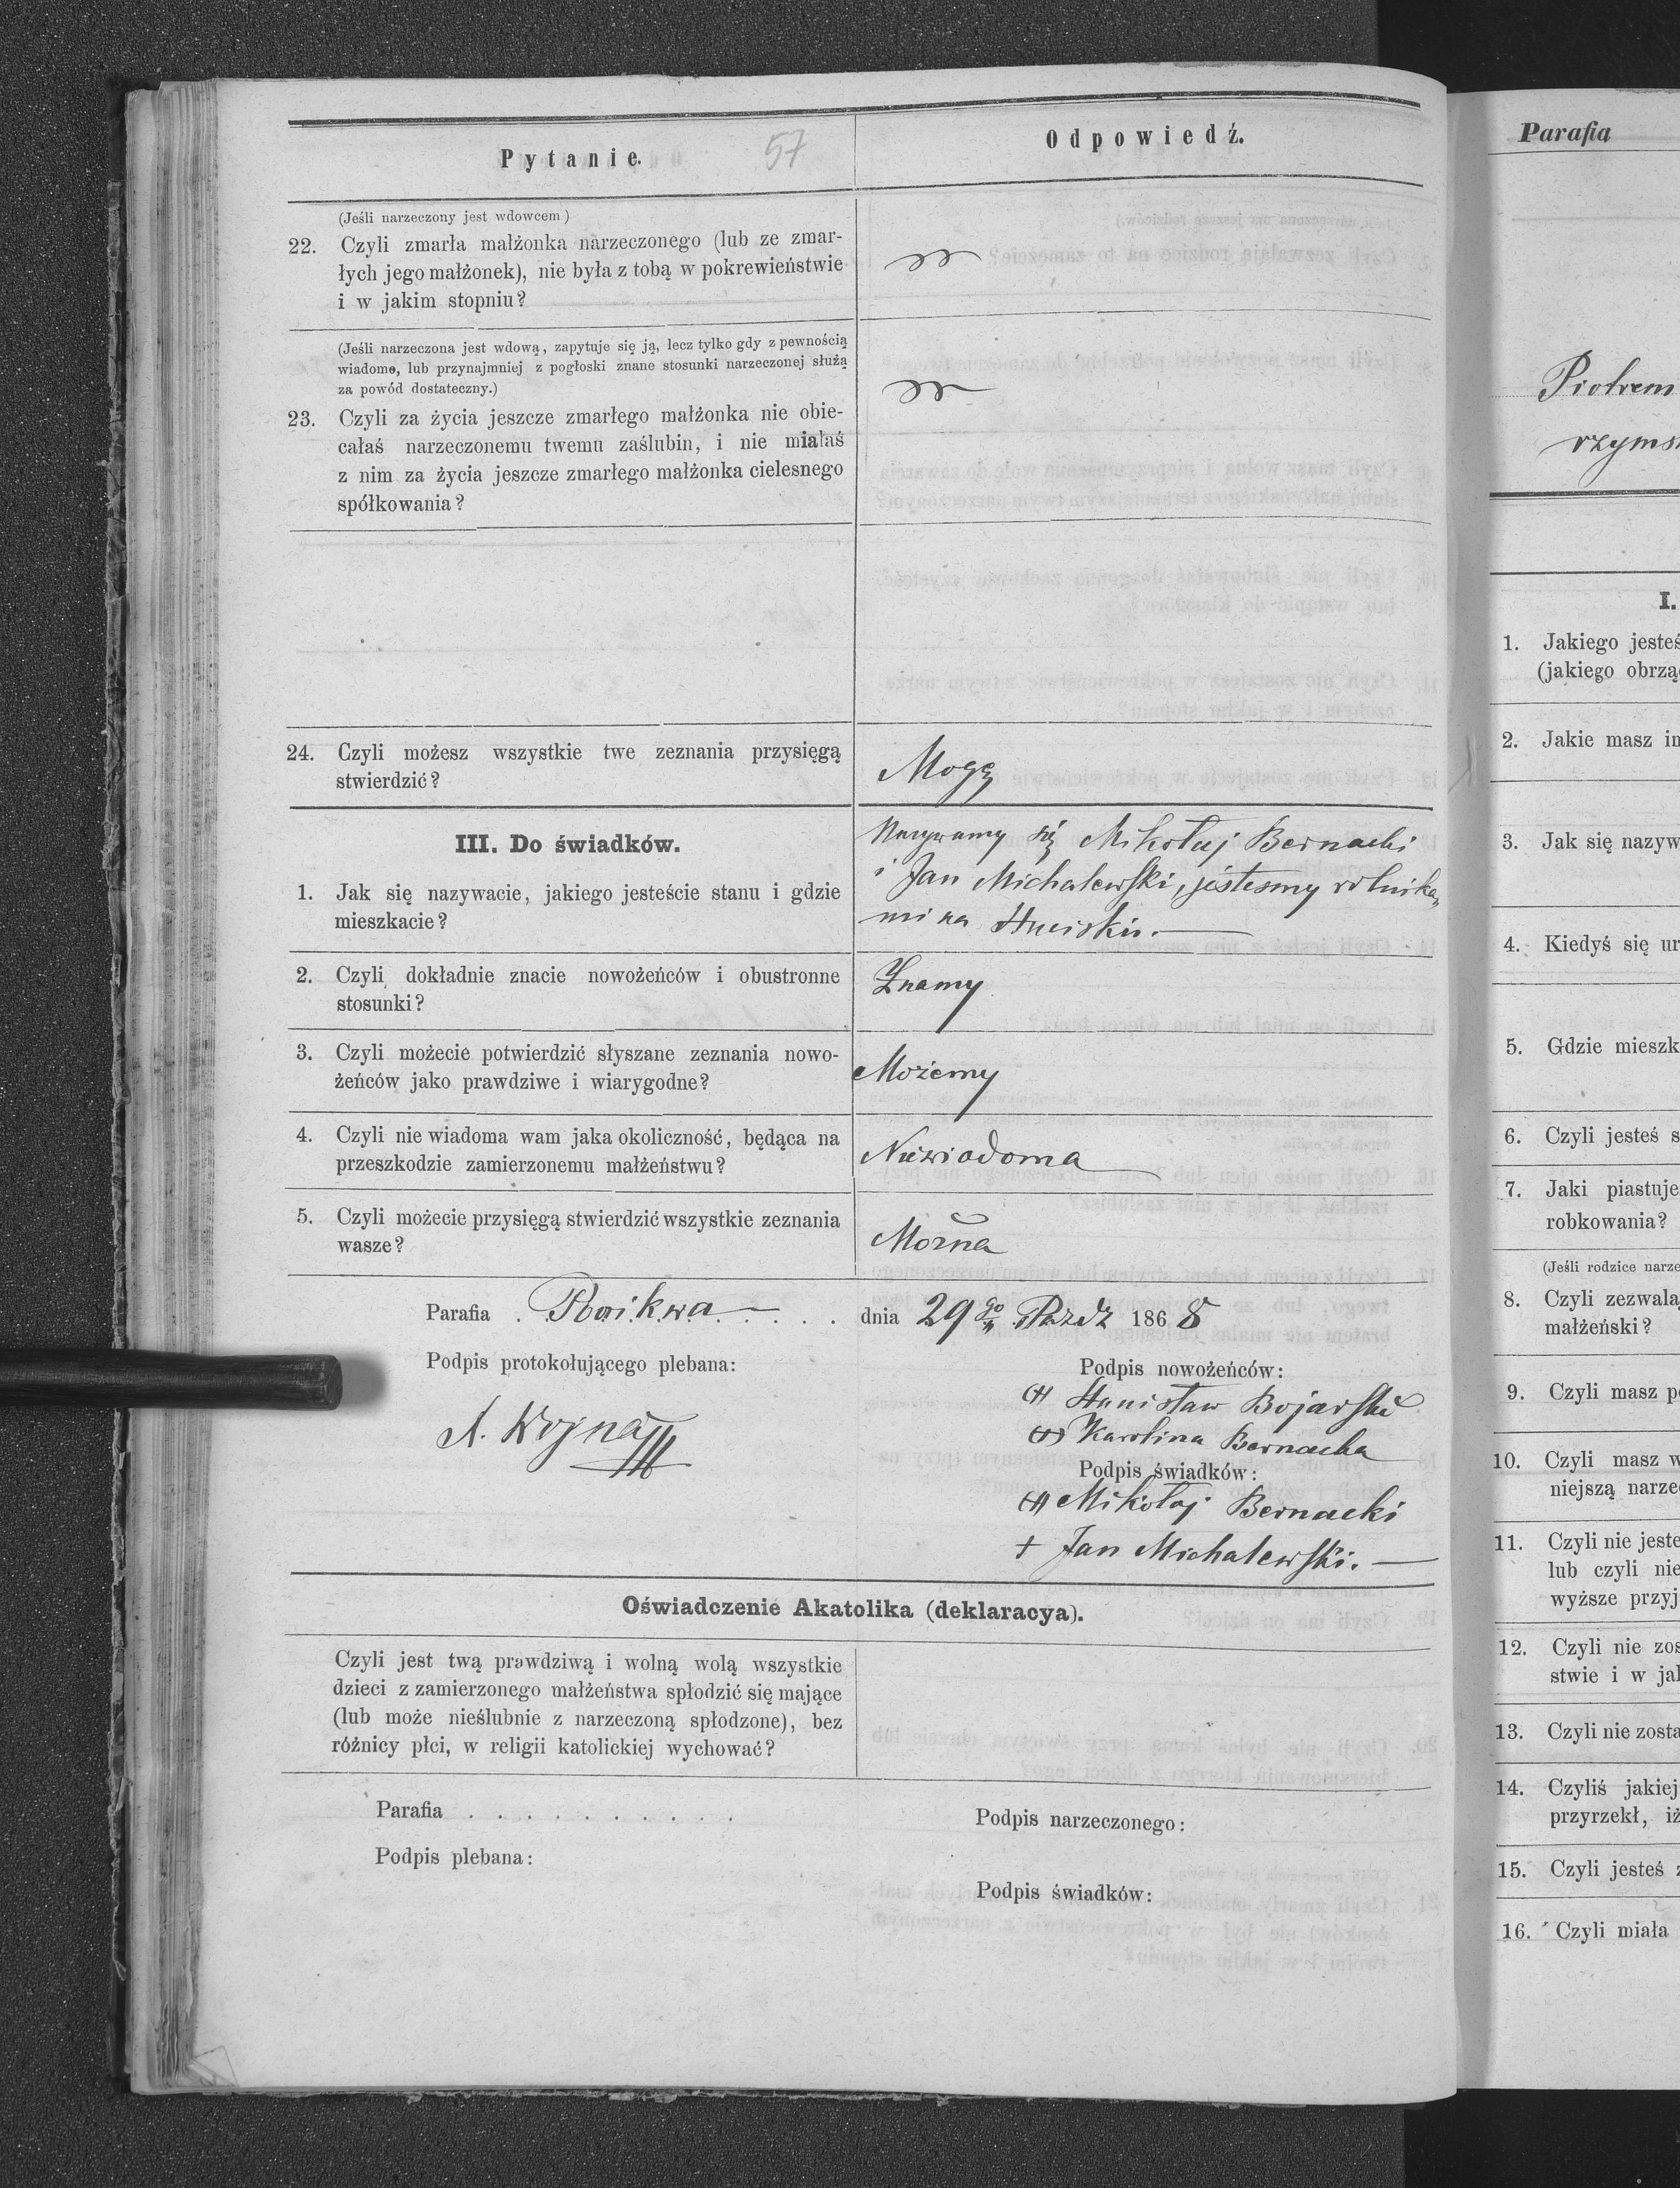 Pytanie.
57
Odpowiedź.
(Jeśli narzeczony jest wdowcem)
22. Czyli zmarła małżonka narzeczonego (lub ze zmar-
łych jego małżonek), nie była z tobą w pokrewieństwie
i w jakim stopniu?
(Jeśli narzeczona jest wdową, zapytuje się ją, lecz tylko gdy z pewnością
wiadome, lub przynajmniej z pogłoski znane stosunki narzeczonej służą
za powód dostateczny.)
23. Czyli za życia jeszcze zmarłego małżonka nie obie-
całaś narzeczonemu twemu zaślubin, i nie miałaś
z nim za życia jeszcze zmarłego małżonka cielesnego
spółkowania?
24. Czyli możesz wszystkie twe zeznania przysięgą
stwierdzić?
Mogę
III. Do świadków.
1. Jak się nazywacie, jakiego jesteście stanu i gdzie
mieszkacie?
Nazywamy się Mikołaj Bernacki
i Jan Michalewski, jestesmy rolnika
mi na Hucisku.
2. Czyli dokładnie znacie nowożeńców i obustronne
stosunki?
Znamy
3. Czyli możecie potwierdzić słyszane zeznania nowo-
żeńców jako prawdziwe i wiarygodne?
Możemy
4. Czyli nie wiadoma wam jaka okoliczność, będąca na
przeszkodzie zamierzonemu małżeństwu?
Niewiadoma
5. Czyli możecie przysięgą stwierdzić wszystkie zeznania
wasze?
Można
Parafia
dnia 29go Paźdz 1868
Podpis protokołującego plebana:
Podpis nowożeńców:
(+) Stanisław Bojarski
(+) Karolina Bernacka
A. Wojna
Podpis świadków:
(+) Mikołaj Bernacki
+ Jan Michalewski.
Oświadczenie Akatolika (deklaracya).
Czyli jest twą prawdziwą i wolną wolą wszystkie
dzieci z zamierzonego małżeństwa spłodzić się mające
(lub może nieślubnie z narzeczoną spłodzone), bez
różnicy płci, w religii katolickiej wychować?
Parafia . . . . . . . . . . .
Podpis narzeczonego:
Podpis plebana:
Podpis świadków:
Parafia
Piotrem
rzyms
I.
1. Jakiego jesteś
(jakiego obrzą
2. Jakie masz im
3. Jak się nazyw
4. Kiedyś się ur
5. Gdzie mieszk
6. Czyli jesteś s
7. Jaki piastuje
robkowania?
(Jeśli rodzice narze
8. Czyli zezwala
małżeński?
9. Czyli masz p
10. Czyli masz w
niejszą narze
11. Czyli nie jeste
lub czyli nie
wyższe przyj
12. Czyli nie zos
stwie i w jak
13. Czyli nie zosta
14. Czyliś jakiej
przyrzekł, iż
15. Czyli jesteś z
16. Czyli miała